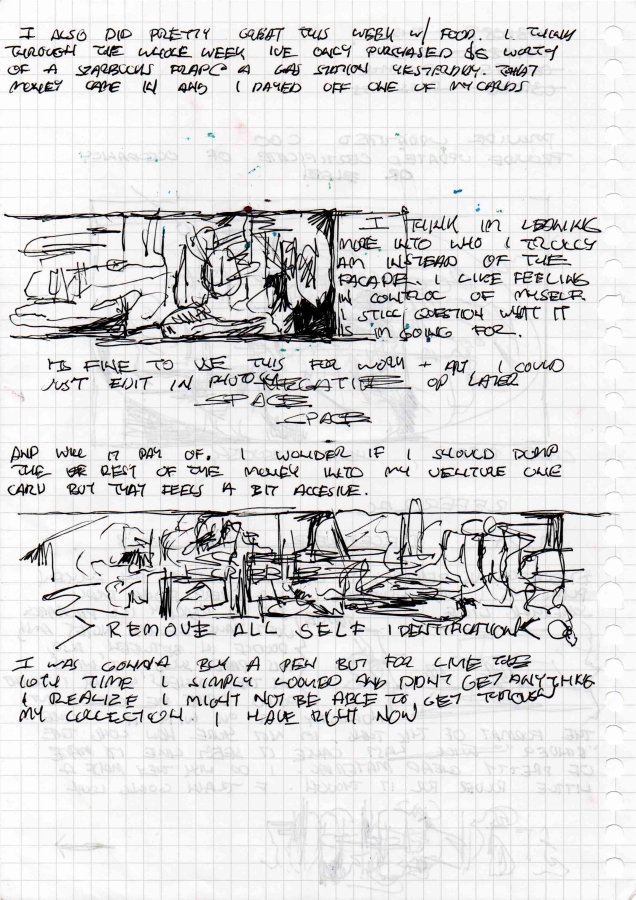 I ALSO DID PRETTY GREAT THIS WEEK W/ FOOD. I THINK
THROUGH THE WHOLE WEEK IVE ONLY PURCHASED $5 WORTH
OF A STARBUCKS FRAPC A GAS STATION YESTERDAY. THAT
MONEY CAME IN AND I PAYED OFF ONE OF MY CARDS
I THINK IM LEANING
MORE INTO WHO I TRULLY
AM INSTEAD OF THE
FACADE. I LIKE FEELING
IN CONTROL OF MYSELF.
I STILL QUESTION WHAT IT
IS IM GOING FOR.
ITS FINE TO USE THIS FOR WORK + ART, I COULD
JUST EDIT IN NEGATIVE OD LATER
SPACE
SPACE
AND WILL IT PAY OF. I WONDER IF I SHOULD DUMP
THE REST OF THE MONEY INTO MY VENTURE ONE
CARD BUT THAT FEELS A BIT ACCESIVE.
> REMOVE ALL SELF IDENTIFICATION <
I WAS GONNA BUY A PEN BUT FOR LIKE THE
10TH TIME I SIMPLY LOOKED AND DIDNT GET ANYTHING
I REALIZE I MIGHT NOT BE ABLE TO GET THROUGH
MY COLLECTION. I HAVE RIGHT NOW